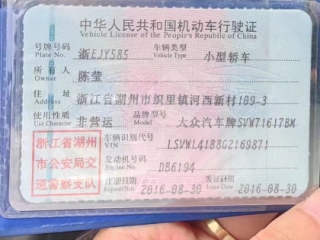 中华人民共和国机动车行驶证
Vehicle License of the People's Republic of China
号牌号码 浙EJY585 车辆类型 小型轿车
Plate No. Vehicle Type
所有人 陈莹
Owner
住址 浙江省湖州市织里镇河西新村109-3
Address
使用性质 非营运 品牌型号 大众汽车牌SVW71617BM
浙江省湖州
市公安局交
通警察支队
车辆识别代号 LSVWL4188G2169871
VIN
发动机号码 DB6194
注册日期 2016-08-30 发证日期 2016-08-30